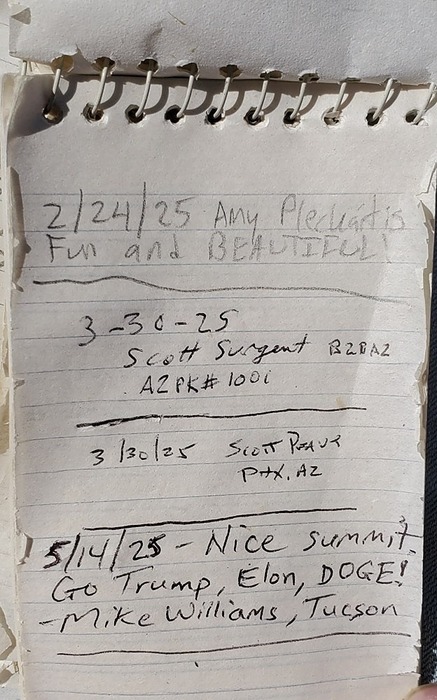 2/24/25 Amy is
Fun and BEAUTIFUL!
3-30-25
Scott Surgent
AZPK# 1001
3/30/25 Scott
PHX, AZ
5/14/25 - Nice summit
Go Trump, Elon, DOGE!
-Mike Williams, Tucson